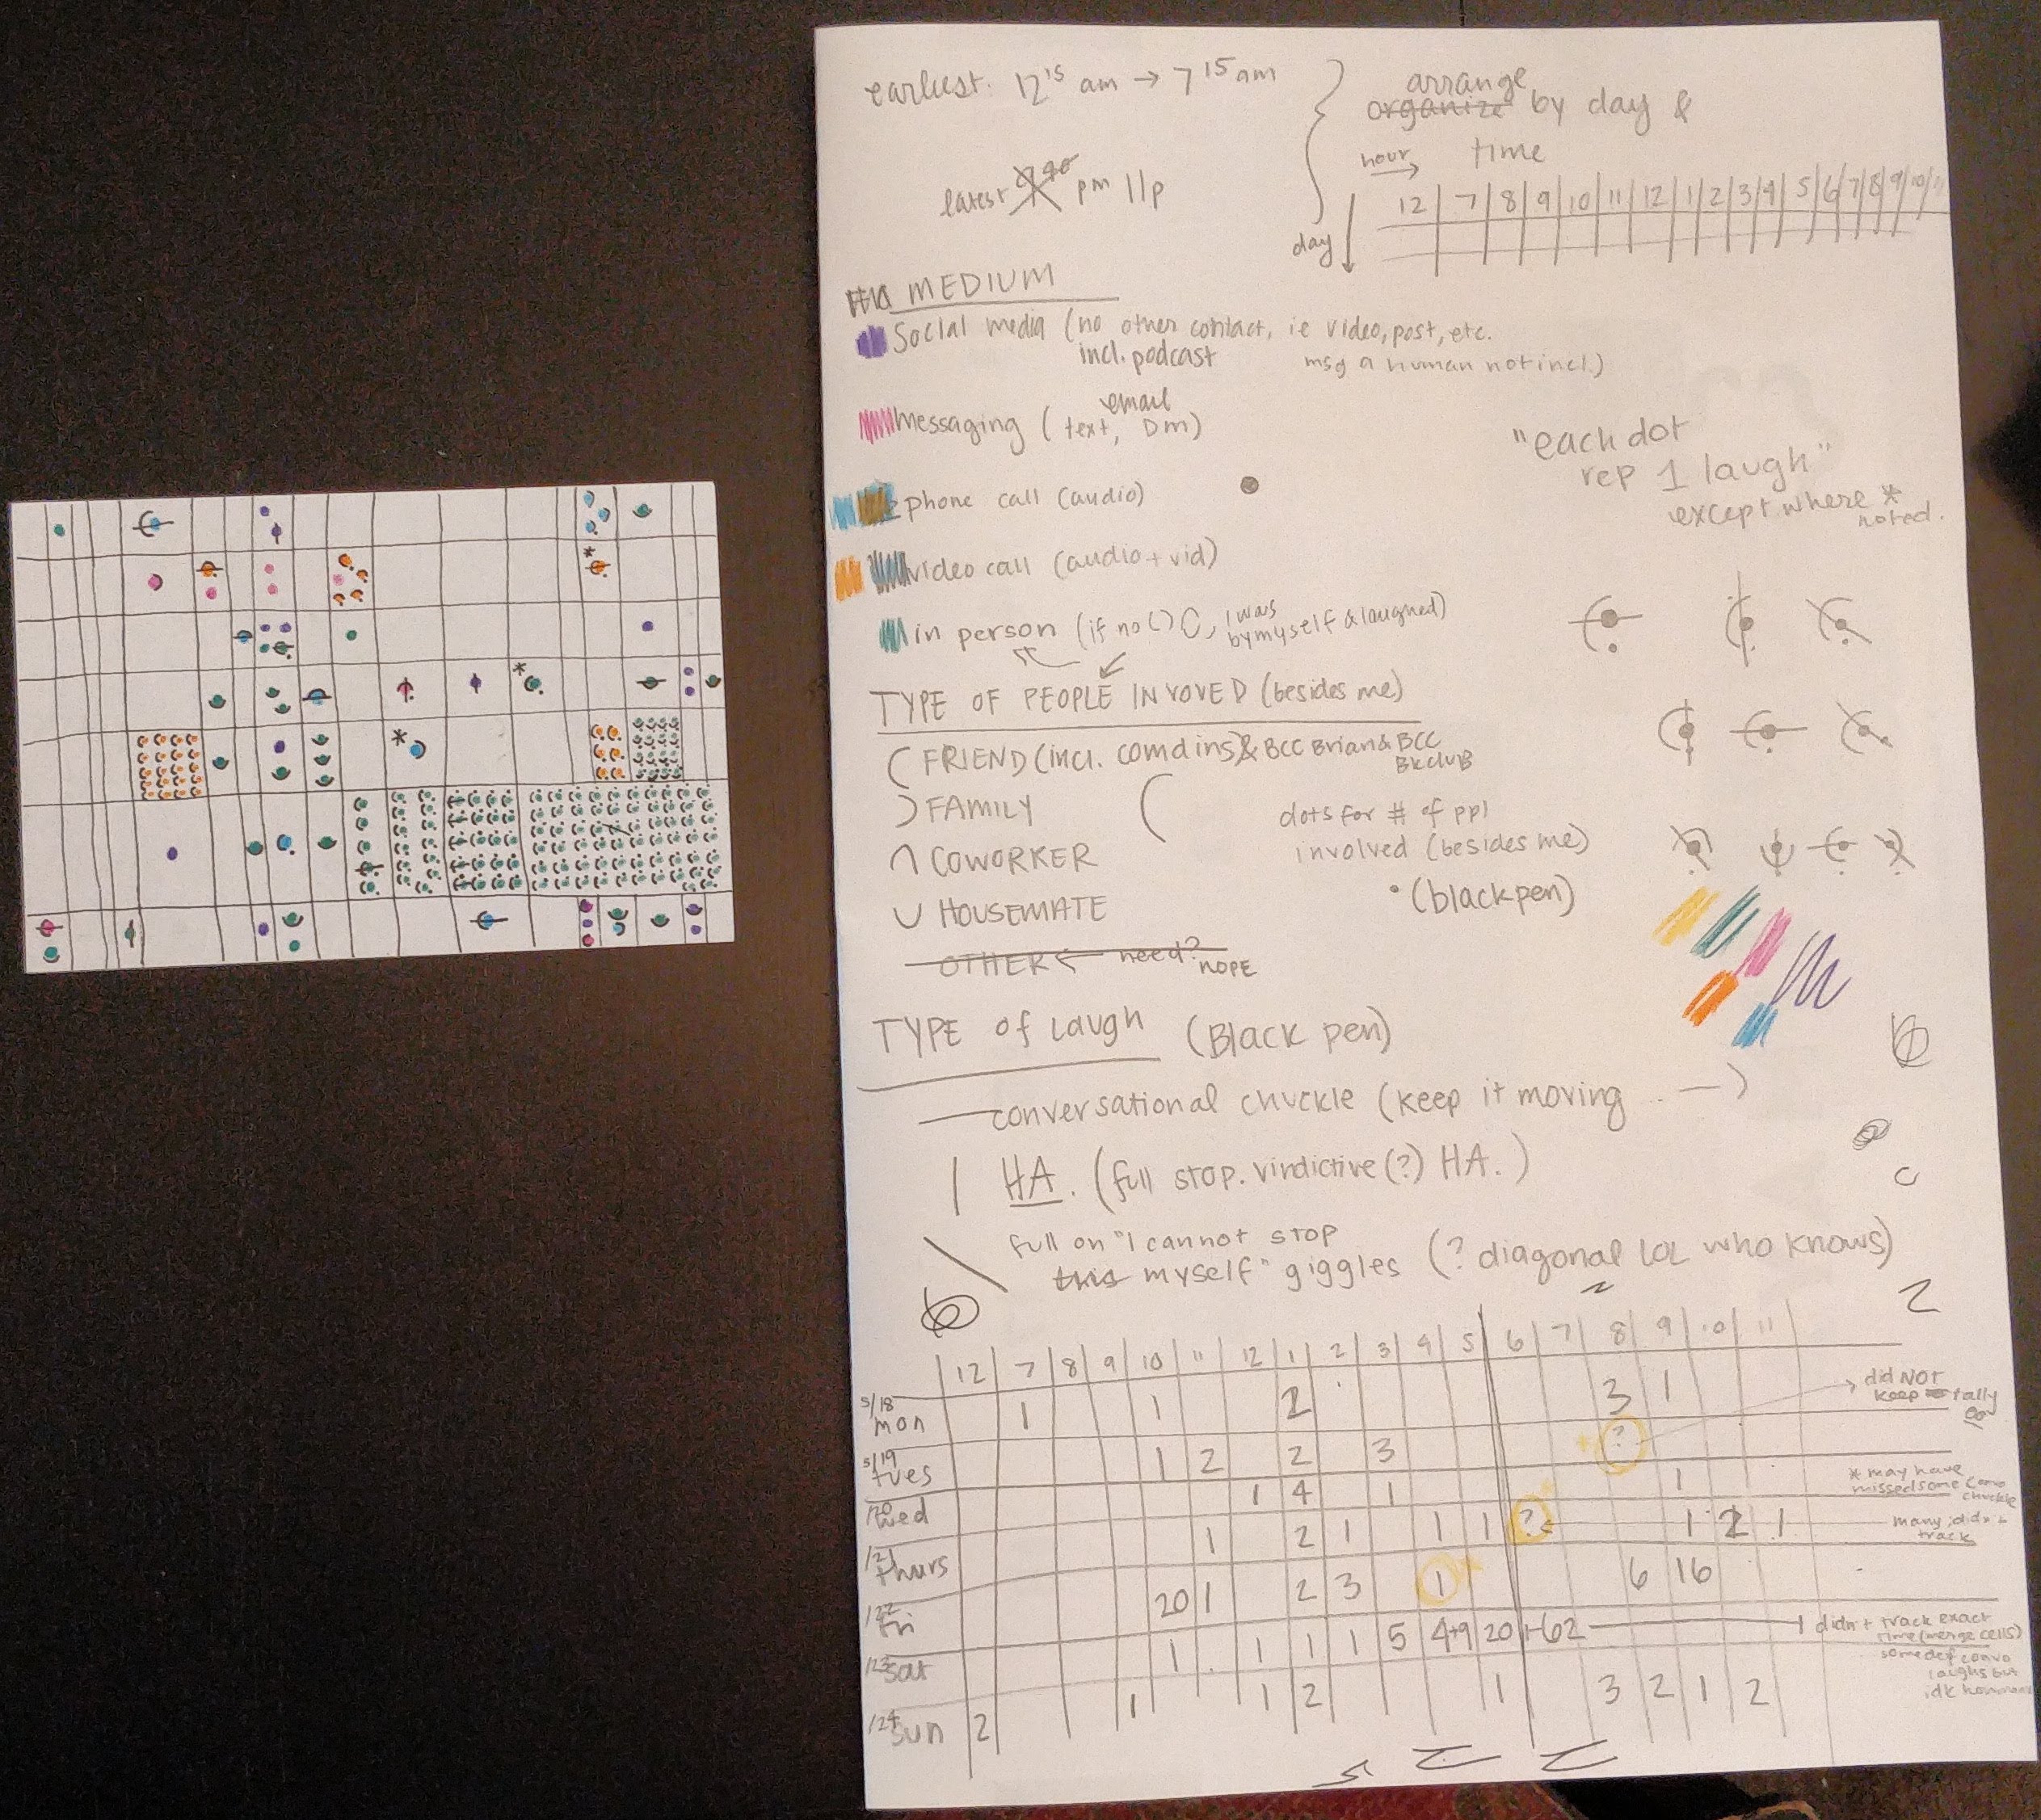 earliest: 12¹⁵ am → 7¹⁵ am
latest 9⁴⁰ pm 11p
arrange
organize by day &
time
hour →
12 7 8 9 10 11 12 1 2 3 4 5 6 7 8 9 10 11
day ↓
MEDIUM
Social media (no other contact, ie video, post, etc.
incl. podcast msg a human not incl.)
email
messaging (text, Dm)
phone call (audio)
video call (audio + vid)
in person (if no ( ) ⊂, I was
by myself & laughed)
"each dot
rep 1 laugh"
except where *
noted.
TYPE OF PEOPLE INVOVED (besides me)
( FRIEND (incl. comdins) & BCC Brian & BCC
BkcluB
) FAMILY
∩ COWORKER
∪ HOUSEMATE
OTHER ← need?
NOPE
dots for # of ppl
involved (besides me)
• (black pen)
TYPE of laugh (Black pen)
— conversational chuckle (keep it moving .. →)
| HA. (full stop. vindictive (?) HA.)
\ full on "I cannot stop
this myself" giggles (? diagonal LOL who knows)
12 7 8 9 10 11 12 1 2 3 4 5 6 7 8 9 10 11
5/18 mon 1 1 2 3 1
→ did NOT
keep tally
5/19 tues 1 2 2 3 * ?
/20 wed 1 4 1 1
* may have
missed some convo
chuckle
/21 thurs 1 2 1 1 1 ? * 1 2 1
many; didn't
track
/22 fri 20 1 2 3 1 * 6 16
/23 sat 1 1 1 1 5 4+9 20 1-62
didn't track exact
time (merge cells)
some def convo
laughs but
idk how many
/24 sun 2 1 1 2 1 3 2 1 2
*
*
*